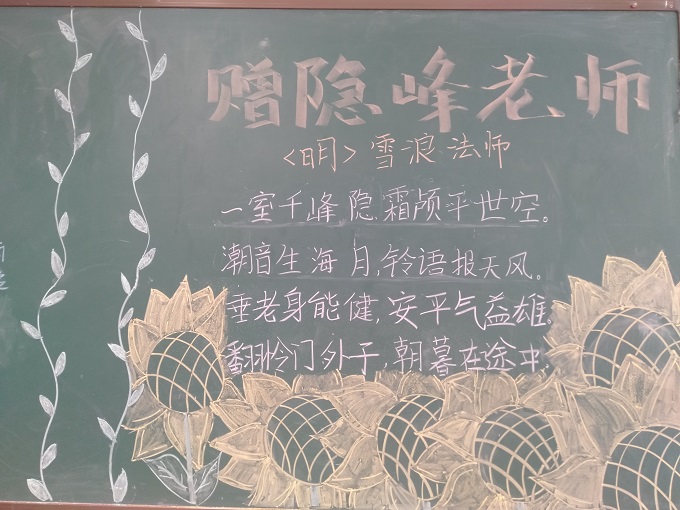 赠隐峰老师
<明> 雪浪法师
一室千峰隐霜颅平世空。
潮音生海月,铃语报天风。
垂老身能健,安平气益雄。
翻怜门外子,朝暮在途中.